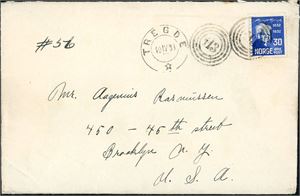 #56
TREGDE
18 IV 31
742
1832
1932
30
NORGE
Mr. Aagenius Rasmussen
450 - 45th street
Brooklyn N.Y.
U.S.A.